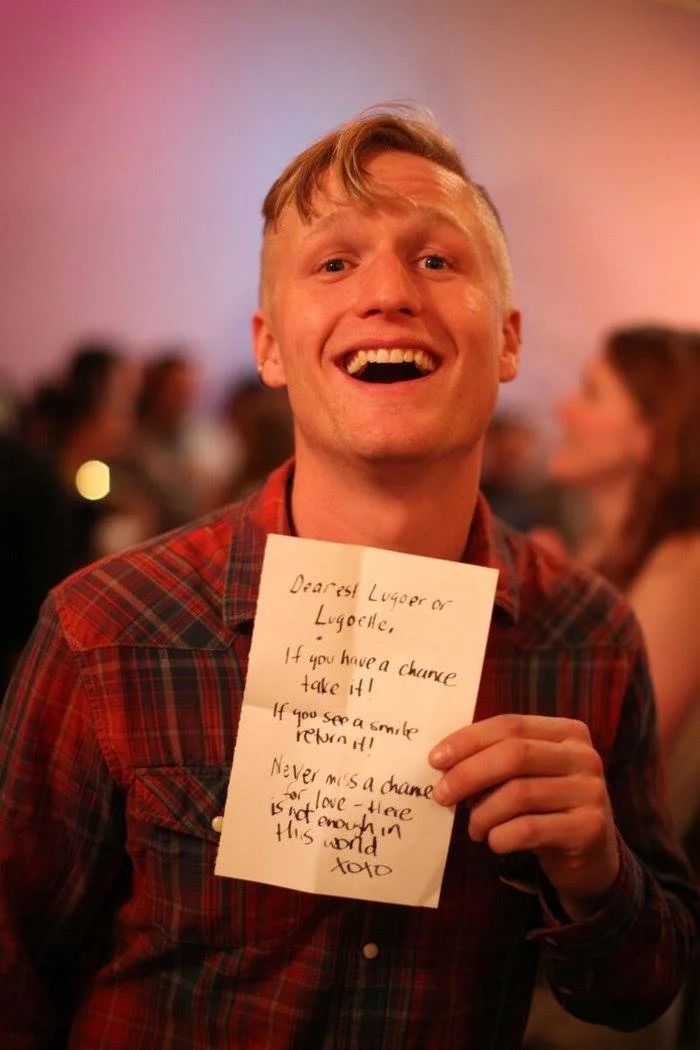 Dearest Lugoer or
Lugoette,
If you have a chance
take it!
If you see a smile
return it!
Never miss a chance
for love - there
is not enough in
this world
xoxo